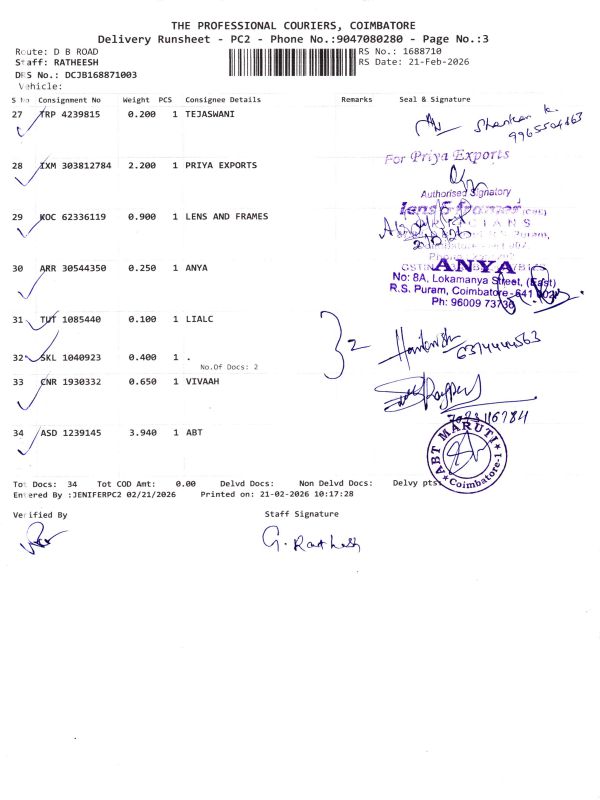 THE PROFESSIONAL COURIERS, COIMBATORE
Delivery Runsheet - PC2 - Phone No.:9047080280 - Page No.:3
Route: D B ROAD
RS No.: 1688710
Staff: RATHEESH
RS Date: 21-Feb-2026
DRS No.: DCJB168871003
Vehicle:
S No Consignment No Weight PCS Consignee Details Remarks Seal & Signature
27 TRP 4239815 0.200 1 TEJASWANI
Shankar K
28 IXM 303812784 2.200 1 PRIYA EXPORTS
For Priya Exports
Authorised Signatory
29 KOC 62336119 0.900 1 LENS AND FRAMES
lens & frames
30 ARR 30544350 0.250 1 ANYA
ANYA
No: 8A, Lokamanya Street, (East)
R.S. Puram, Coimbatore - 641 002
Ph: 96009 73736
31 TUT 1085440 0.100 1 LIALC
2
32 SKL 1040923 0.400 1 .
No.Of Docs: 2
33 CNR 1930332 0.650 1 VIVAAH
34 ASD 1239145 3.940 1 ABT
ABT MARUTI
Coimbatore-1
Tot Docs: 34 Tot COD Amt: 0.00 Delvd Docs: Non Delvd Docs: Delvy pts
Entered By :JENIFERPC2 02/21/2026 Printed on: 21-02-2026 10:17:28
Verified By Staff Signature
G. Ratheesh